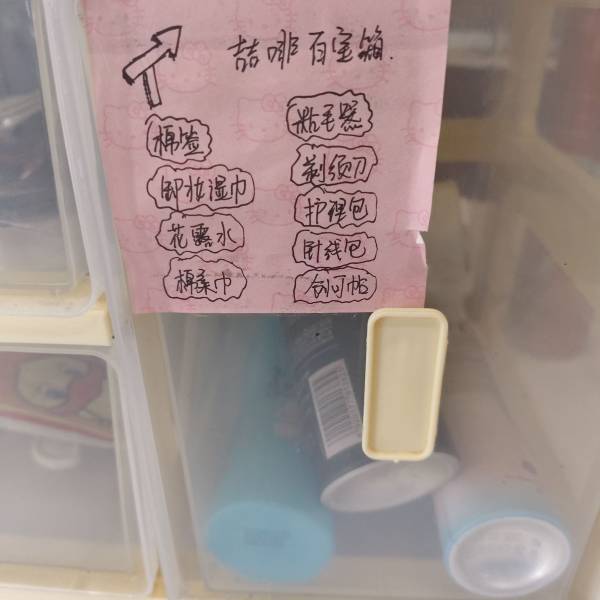 喆啡百宝箱.
棉签
卸妆湿巾
花露水
棉柔巾
粘毛器
剃须刀
护理包
针线包
创可帖